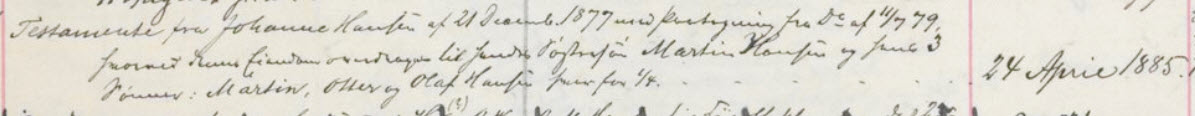 Testamente fra Johanne Hansen af 21 Decemb. 1877 med Paategning fra Do af 11/7 79,
hvorved denne Eiendom overdrages til hendes Søstersøn Martin Hansen og hans 3
Sønner: Martin, Otter og Olaf Hansen hver for 1/4. 24 April 1885.